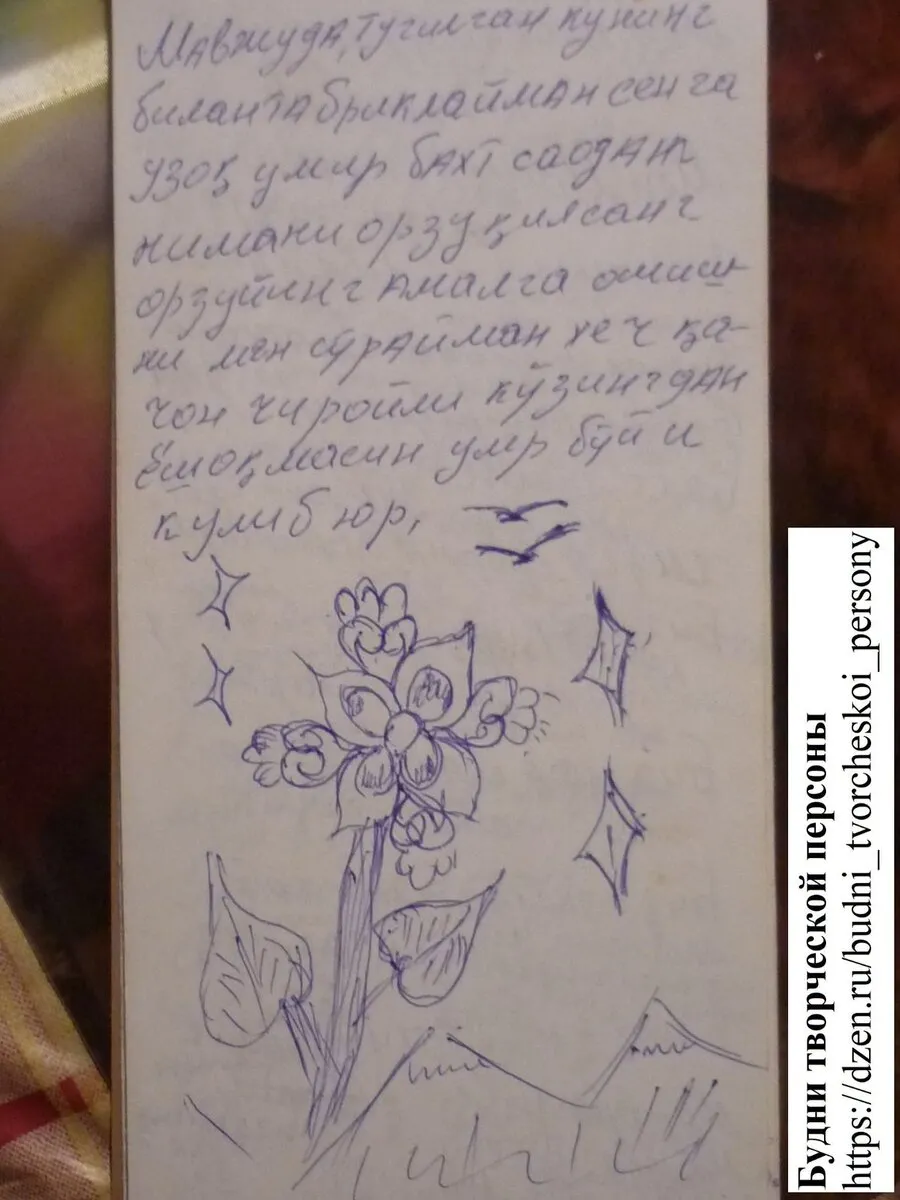 Мавжуда, тугилган кунинг
билан табриклайман сенга
узоқ умир бахт саодат
нимани орзу қилсанг
орзуйинг амалга ошиш-
ни ман сўрайман хеч қа-
чон чиройли кўзингдан
ёш оқмасин умр бўйи
кулиб юр,
Будни творческой персоны
https://dzen.ru/budni_tvorcheskoi_persony